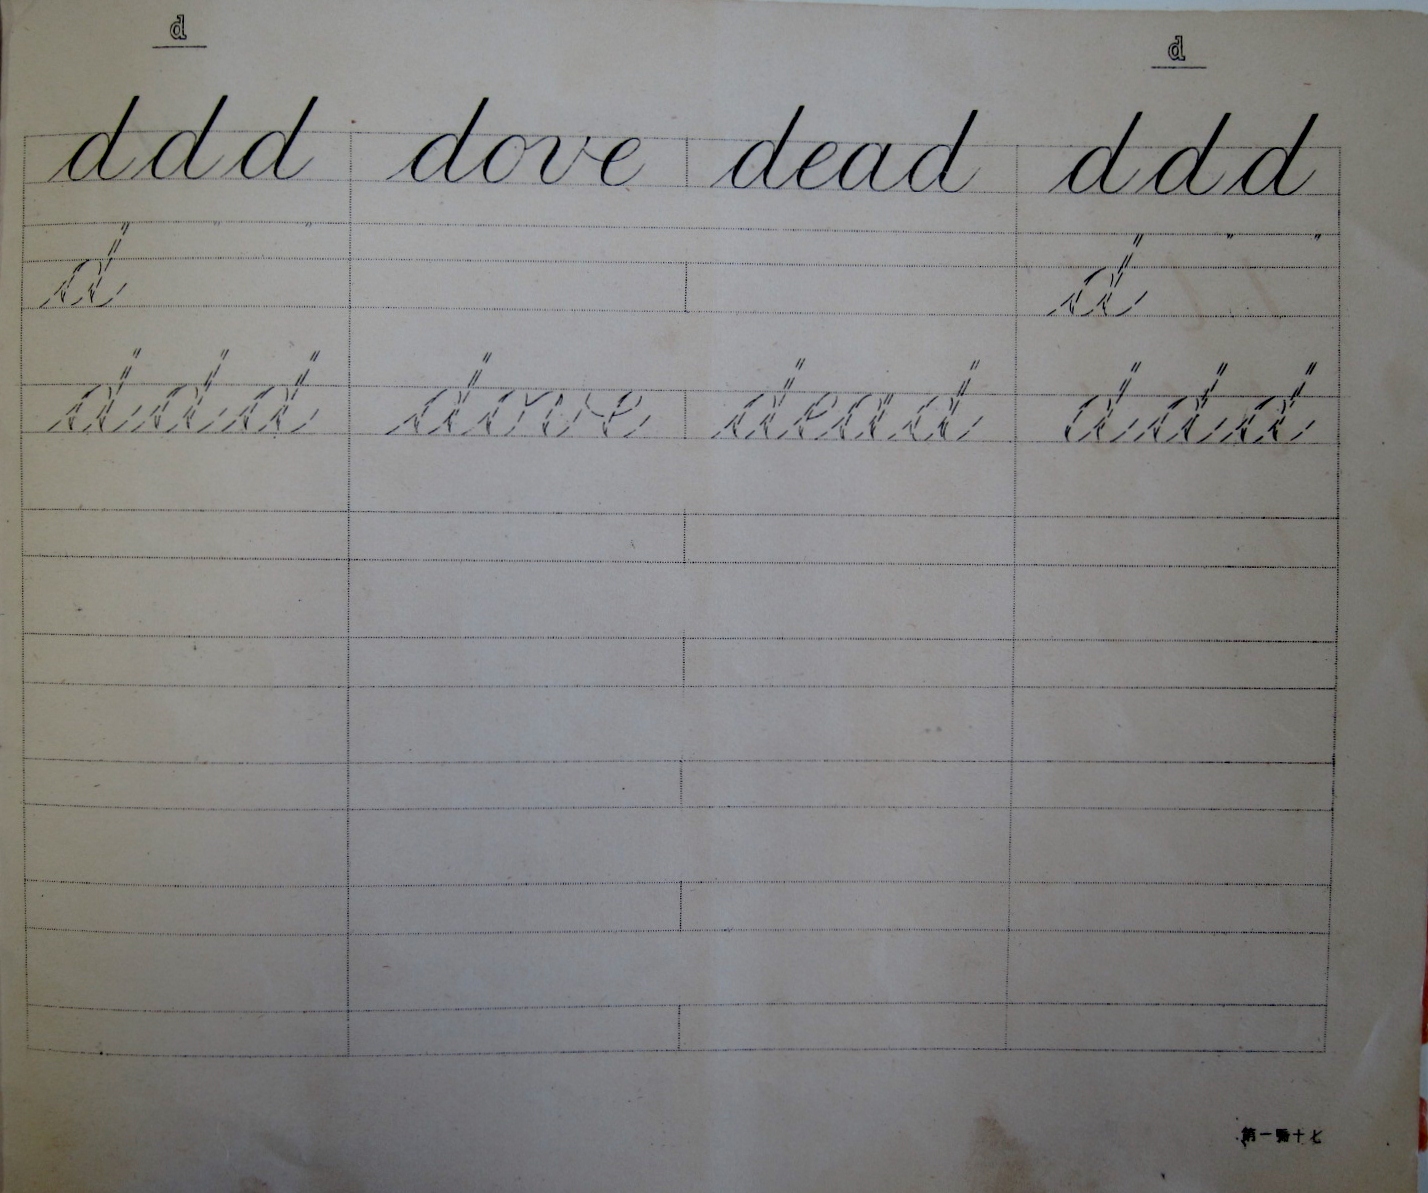 d d
ddd dove dead ddd
d d
ddd dove dead ddd
第一號十七